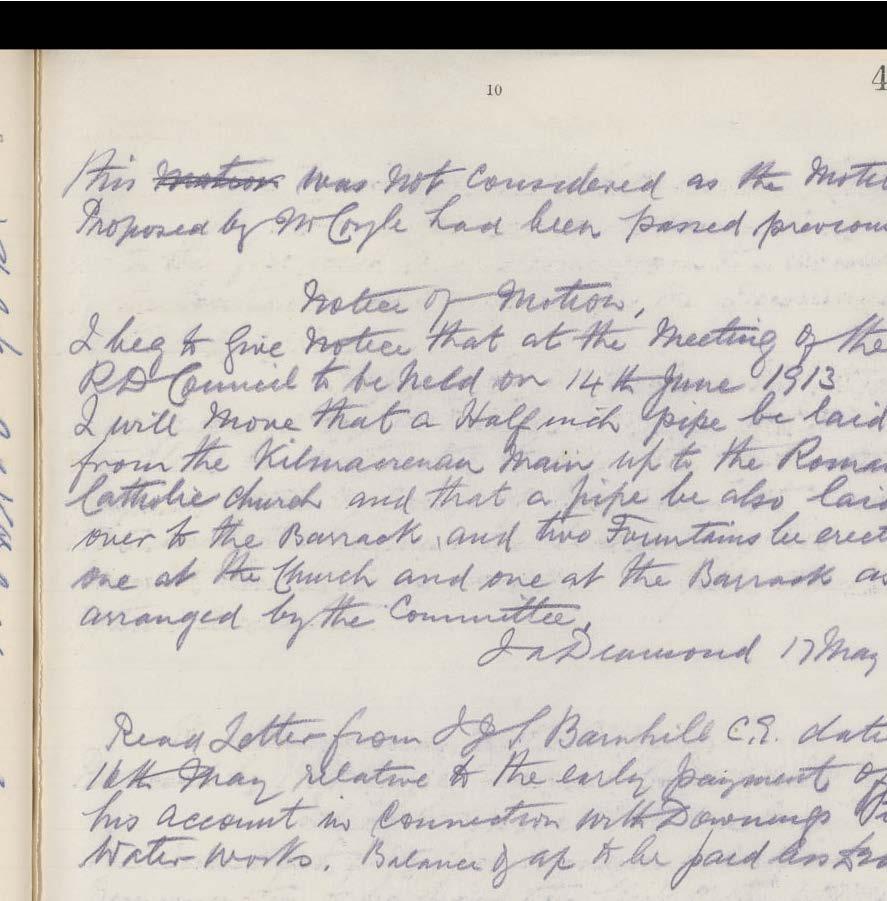 10
4
this motion was not considered as the Motio
Proposed by Mr Coyle had been passed previous
Notice of Motion,
I beg to give notice that at the Meeting of the
R D Council to be held on 14th June 1913
I will move that a Half inch pipe be laid
from the Kilmacrenan Main up to the Roman
Catholic Church and that a pipe be also laid
over to the Barrack, and two Fountains be erect
one at the Church and one at the Barrack as
arranged by the Committee,
Jas Diamond 17 May
Read Letter from J G L Barnhill C.E. date
16th May relative to the early payment of
his account in connection with Downings
Water works. Balance of a/c to be paid less